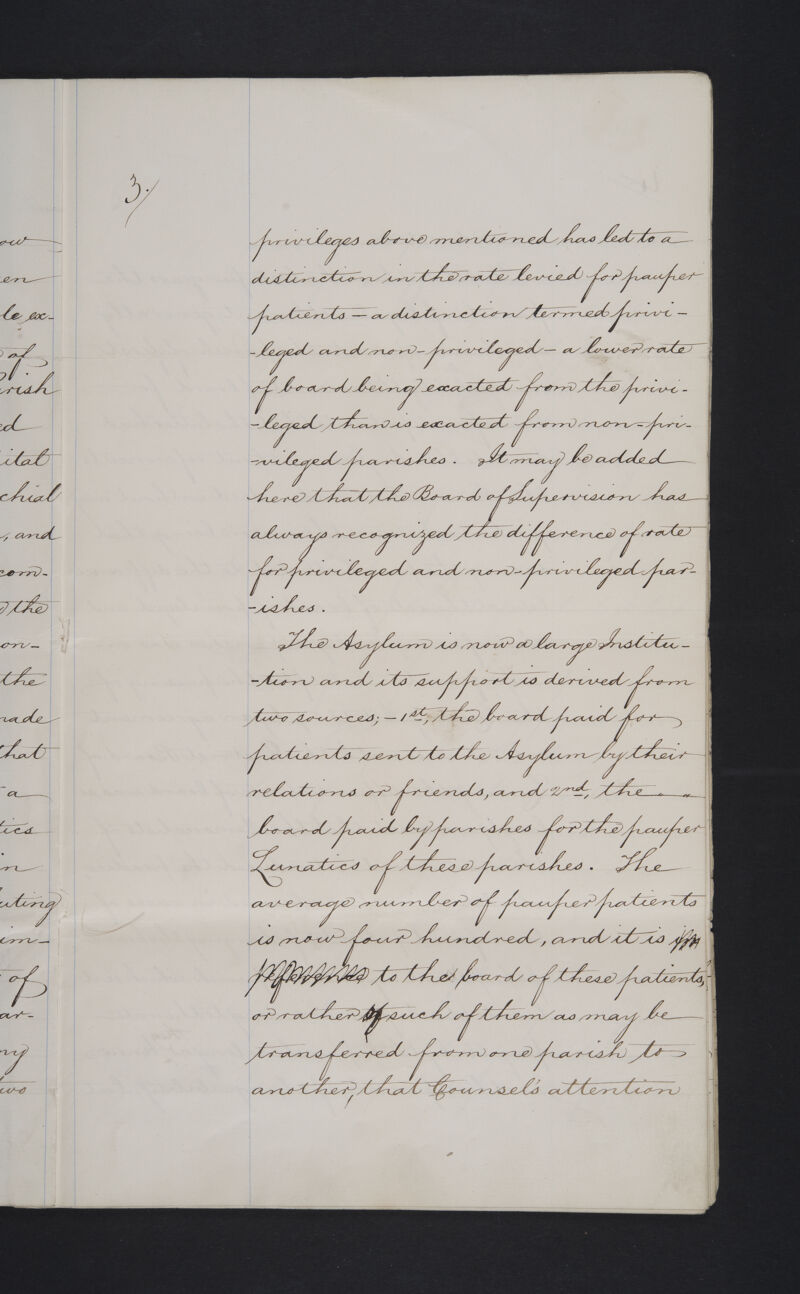 ow
en
le ex-
of
rish
ed
ital
chial
, and
com-
the
on-
the
nade
that
a
tics
in
uting
im-
of
ar-
ny
two
3.
privileges above mentioned has led to a
distinction in the rate levied for pauper
patients – a distinction termed privi-
-leged and non-privileged – a lower rate
of board being exacted from the privi-
-leged than is exacted from non-pri-
-vileged parishes. It may be added
here that the Board of Supervision has
always recognized the difference of rate
for privileged and non-privileged par-
-ishes.
The Asylum is now a large Institu-
-tion and its support is derived from
two sources; – 1st, the board paid for
patients sent to the Asylum by their
relations or friends, and 2nd, the
board paid by parishes for the pauper
Lunatics of these parishes. The
average number of pauper patients
is now four hundred, and it is in
reference to the board of these patients,
or rather of such of them as may be
transferred from one parish to
another, that Counsel's attention